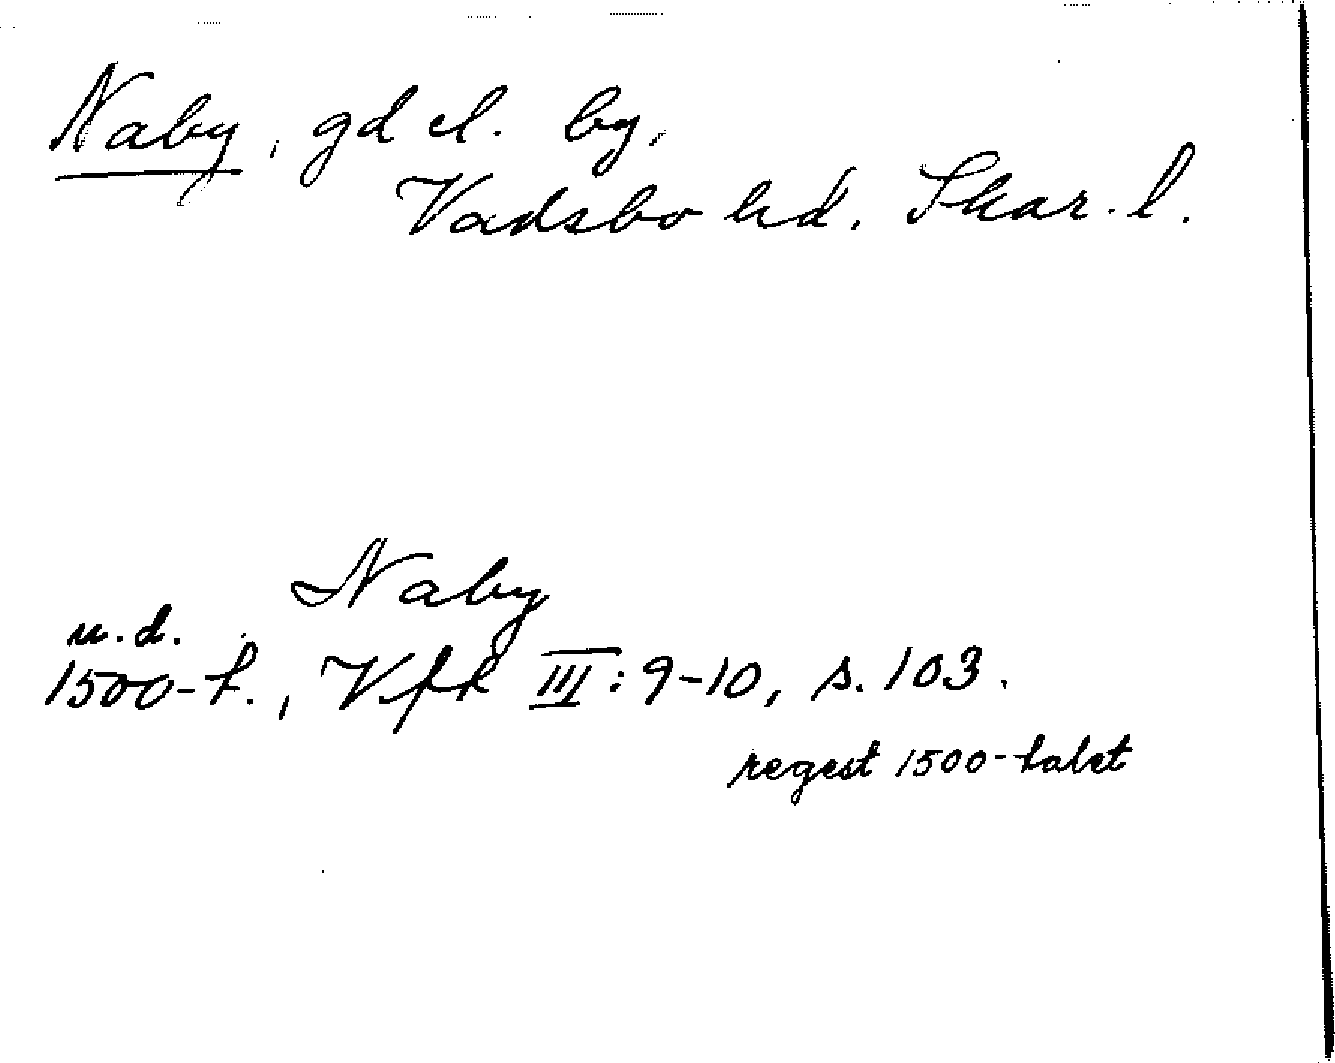 Naby, gd el. by,
Vadsbo hd. Skar. l.
Naby
u.d.
1500-t., Vfk III: 9-10, s. 103.
regest 1500-talet